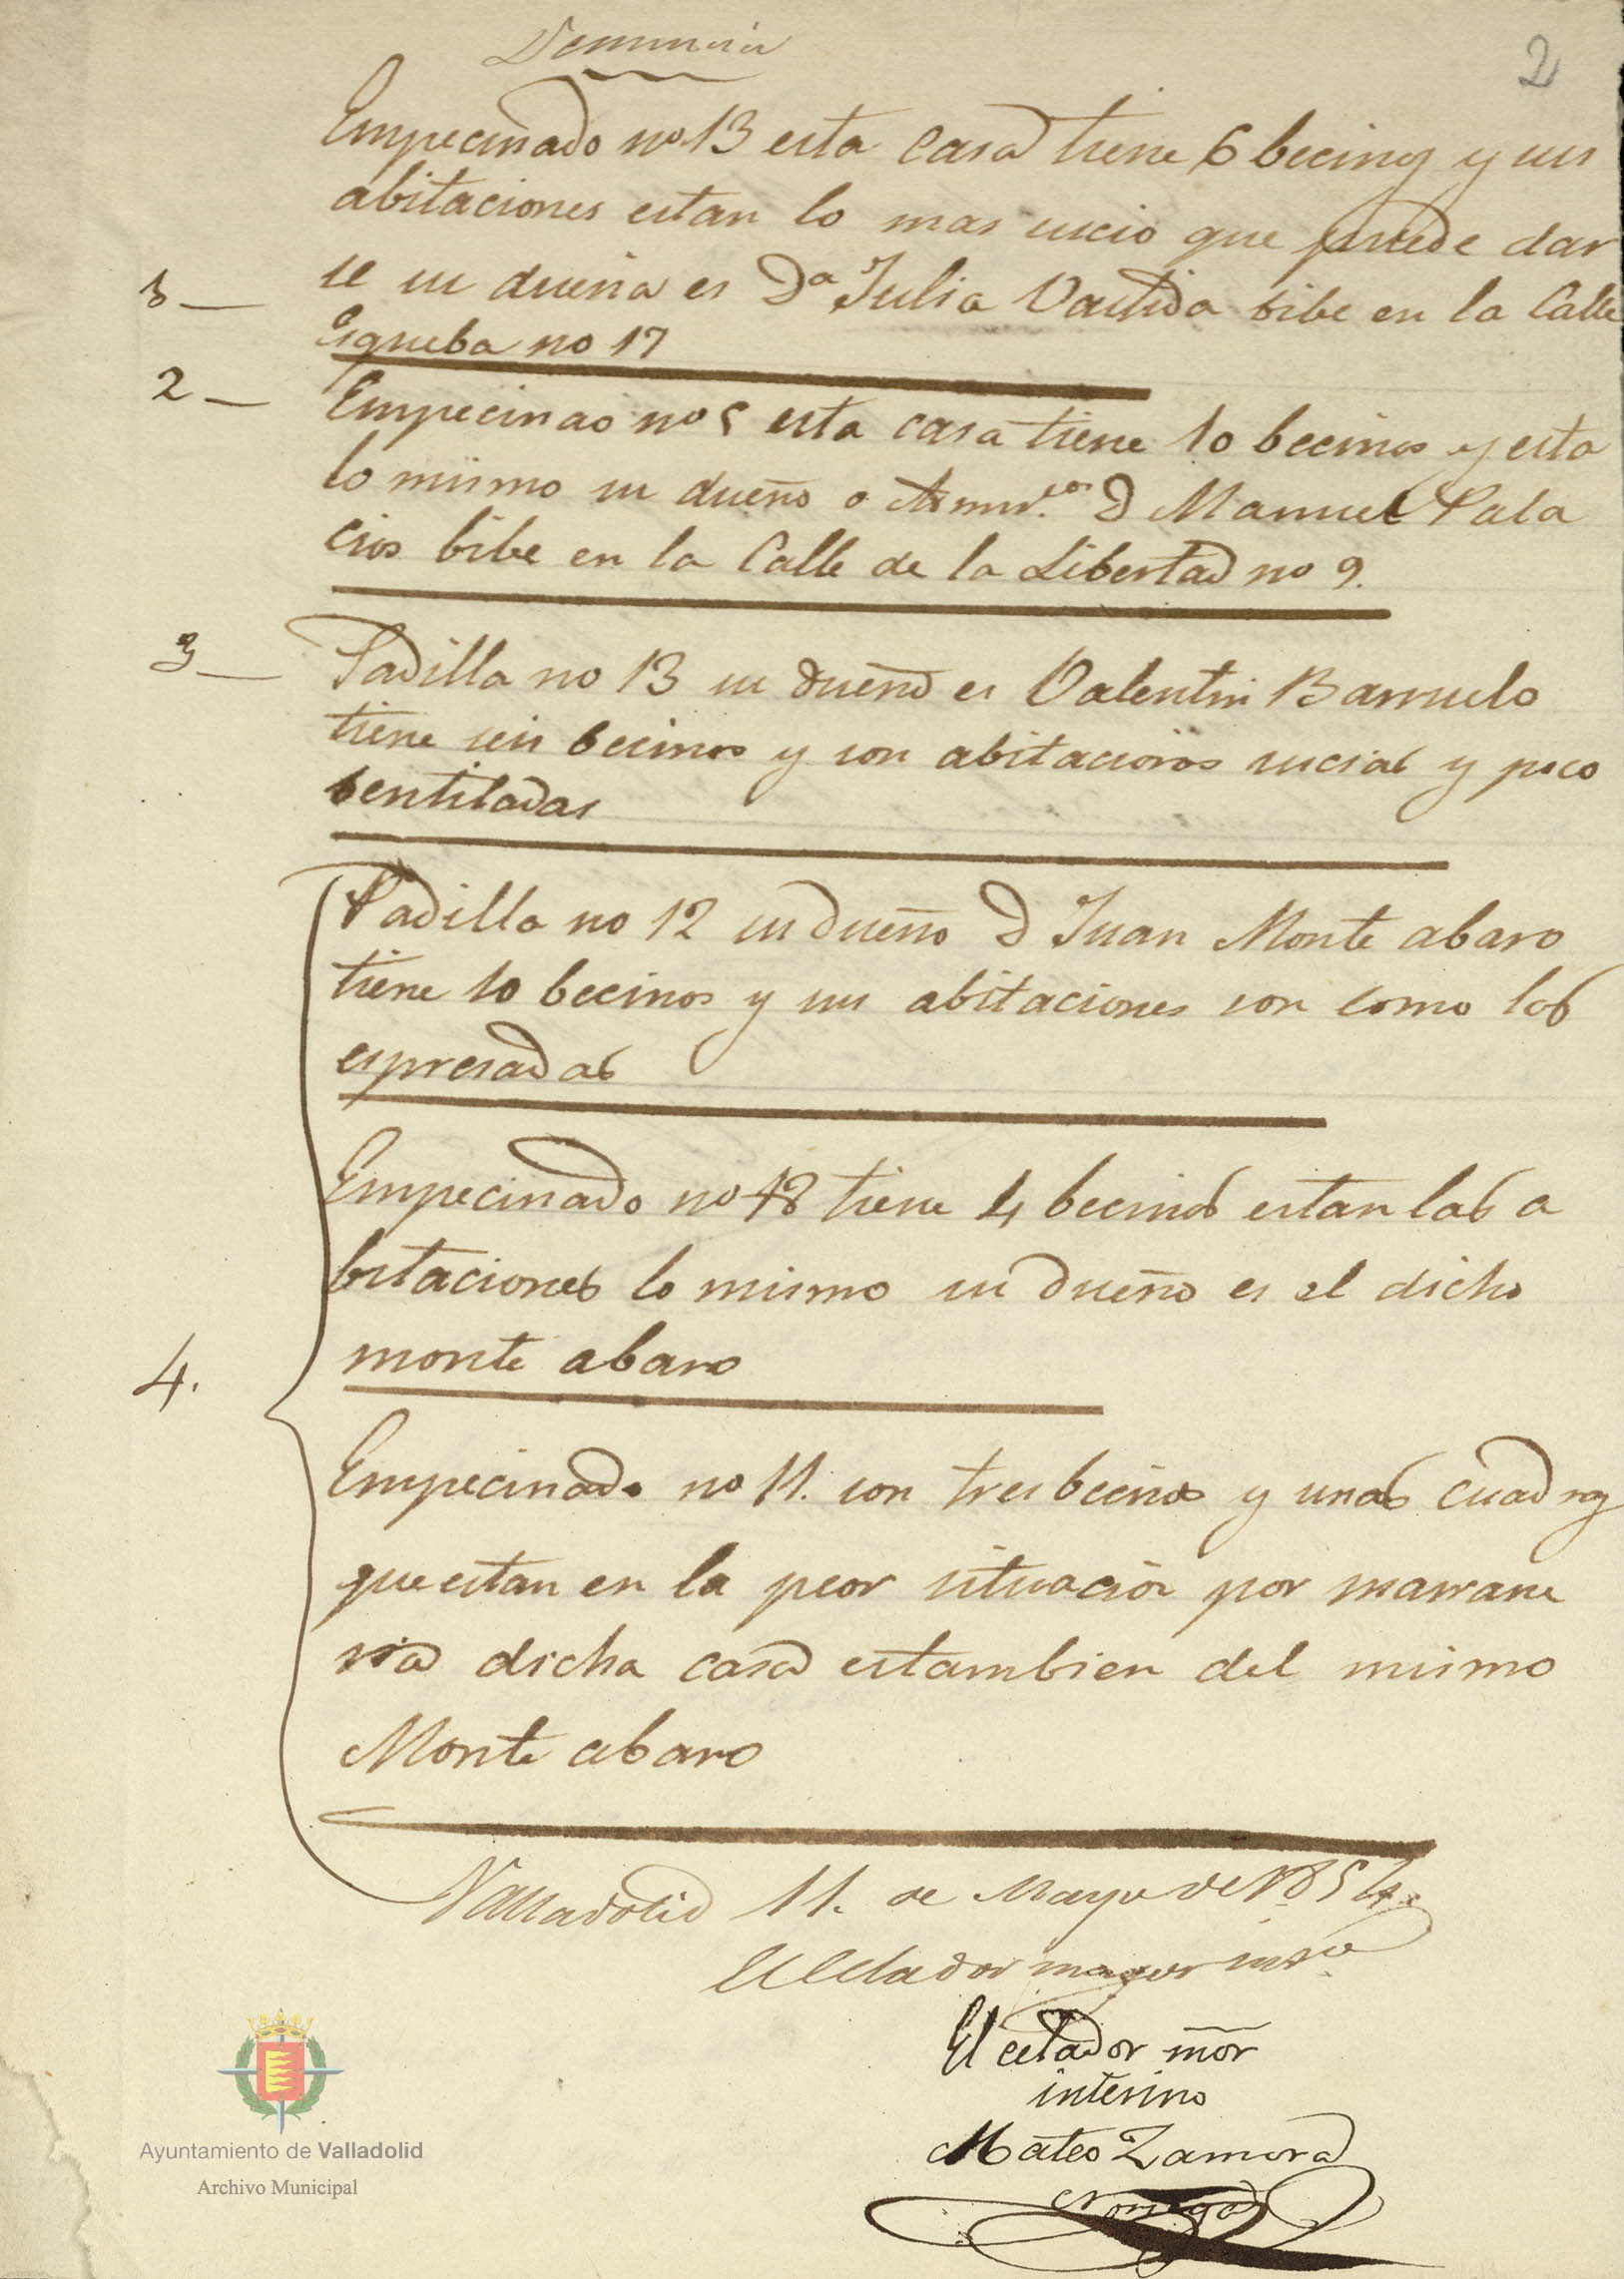 Denuncia
2
Empecinado no 13 esta casa tiene 6 becinos y sus
abitaciones estan lo mas sucio que puede dar
1 — se su dueña es Da Julia bibe en la Calle
Esgueba no 17
2 — Empecinao no 5 esta casa tiene 10 becinos y esta
lo mismo su dueño o D Manuel Pala
cios bibe en la Calle de la Libertad no 9.
3 — Padilla no 13 su dueño es Valentin Barruelo
tiene seis becinos y son abitaciones sucias y poco
bentiladas
Padilla no 12 su dueño D Juan Monte abaro
tiene 10 becinos y sus abitaciones son como los
espresadas
Empecinado no 18 tiene 4 becinos estan las a
bitaciones lo mismo su dueño es el dicho
4. monte abaro
Empecinado no 11. son tres becinos y unas cuadras
que estan en la peor situacion por marrane
ria dicha casa es tambien del mismo
Monte abaro
Valladolid 11. de Mayo de 1854.
El Celador mayor intno
El celador mor
interino
Mateo Zamora
Noriega
Ayuntamiento de Valladolid
Archivo Municipal